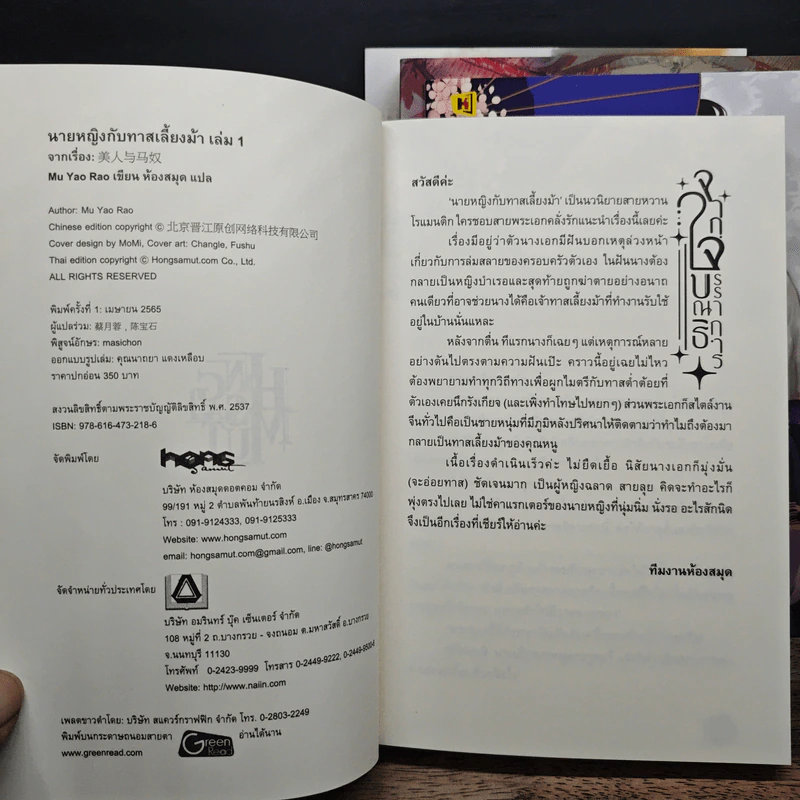 นายหญิงกับทาสเลี้ยงม้า เล่ม 1
จากเรื่อง: 美人与马奴
Mu Yao Rao เขียน ห้องสมุด แปล
Author: Mu Yao Rao
Chinese edition copyright © 北京晋江原创网络科技有限公司
Cover design by MoMi, Cover art: Changle, Fushu
Thai edition copyright © Hongsamut.com Co., Ltd.
ALL RIGHTS RESERVED
พิมพ์ครั้งที่ 1: เมษายน 2565
ผู้แปลร่วม: 蔡月蓉 , 陈宝石
พิสูจน์อักษร: masichon
ออกแบบรูปเล่ม: คุณนาถยา แตงเหลือบ
ราคาปกอ่อน 350 บาท
สงวนลิขสิทธิ์ตามพระราชบัญญัติลิขสิทธิ์ พ.ศ. 2537
ISBN: 978-616-473-218-6
จัดพิมพ์โดย
hong
samut
บริษัท ห้องสมุดดอตคอม จำกัด
99/191 หมู่ 2 ตำบลพันท้ายนรสิงห์ อ.เมือง จ.สมุทรสาคร 74000
โทร : 091-9124333, 091-9125333
Website: www.hongsamut.com
email: hongsamut.com@gmail.com, line: @hongsamut
จัดจำหน่ายทั่วประเทศโดย
บริษัท อมรินทร์ บุ๊ค เซ็นเตอร์ จำกัด
108 หมู่ที่ 2 ถ.บางกรวย - จงถนอม ต.มหาสวัสดิ์ อ.บางกรวย
จ.นนทบุรี 11130
โทรศัพท์ 0-2423-9999 โทรสาร 0-2449-9222, 0-2449-9500-6
Website: http://www.naiin.com
เพลตขาวดำโดย: บริษัท สแควร์กราฟฟิก จำกัด โทร. 0-2803-2249
พิมพ์บนกระดาษถนอมสายตา Green Read อ่านได้นาน
www.greenread.com
จากใจ
บรรณาธิการ
สวัสดีค่ะ
'นายหญิงกับทาสเลี้ยงม้า' เป็นนวนิยายสายหวาน
โรแมนติก ใครชอบสายพระเอกคลั่งรักแนะนำเรื่องนี้เลยค่ะ
เรื่องมีอยู่ว่าตัวนางเอกมีฝันบอกเหตุล่วงหน้า
เกี่ยวกับการล่มสลายของครอบครัวตัวเอง ในฝันนางต้อง
กลายเป็นหญิงบำเรอและสุดท้ายถูกฆ่าตายอย่างอนาถ
คนเดียวที่อาจช่วยนางได้คือเจ้าทาสเลี้ยงม้าที่ทำงานรับใช้
อยู่ในบ้านนั่นแหละ
หลังจากตื่น ทีแรกนางก็เฉยๆ แต่เหตุการณ์หลาย
อย่างดันไปตรงตามความฝันเป๊ะ คราวนี้อยู่เฉยไม่ไหว
ต้องพยายามทำทุกวิถีทางเพื่อผูกไมตรีกับทาสต่ำต้อยที่
ตัวเองเคยนึกรังเกียจ (และเพิ่งทำโทษไปหยกๆ) ส่วนพระเอกก็สไตล์งาน
จีนทั่วไปคือเป็นชายหนุ่มที่มีภูมิหลังปริศนาให้ติดตามว่าทำไมถึงต้องมา
กลายเป็นทาสเลี้ยงม้าของคุณหนู
เนื้อเรื่องดำเนินเร็วค่ะ ไม่ยืดเยื้อ นิสัยนางเอกก็มุ่งมั่น
(จะอ่อยทาส) ชัดเจนมาก เป็นผู้หญิงฉลาด สายลุย คิดจะทำอะไรก็
พุ่งตรงไปเลย ไม่ใช่คาแรกเตอร์ของนายหญิงที่นุ่มนิ่ม นั่งรอ อะไรสักนิด
จึงเป็นอีกเรื่องที่เชียร์ให้อ่านค่ะ
ทีมงานห้องสมุด